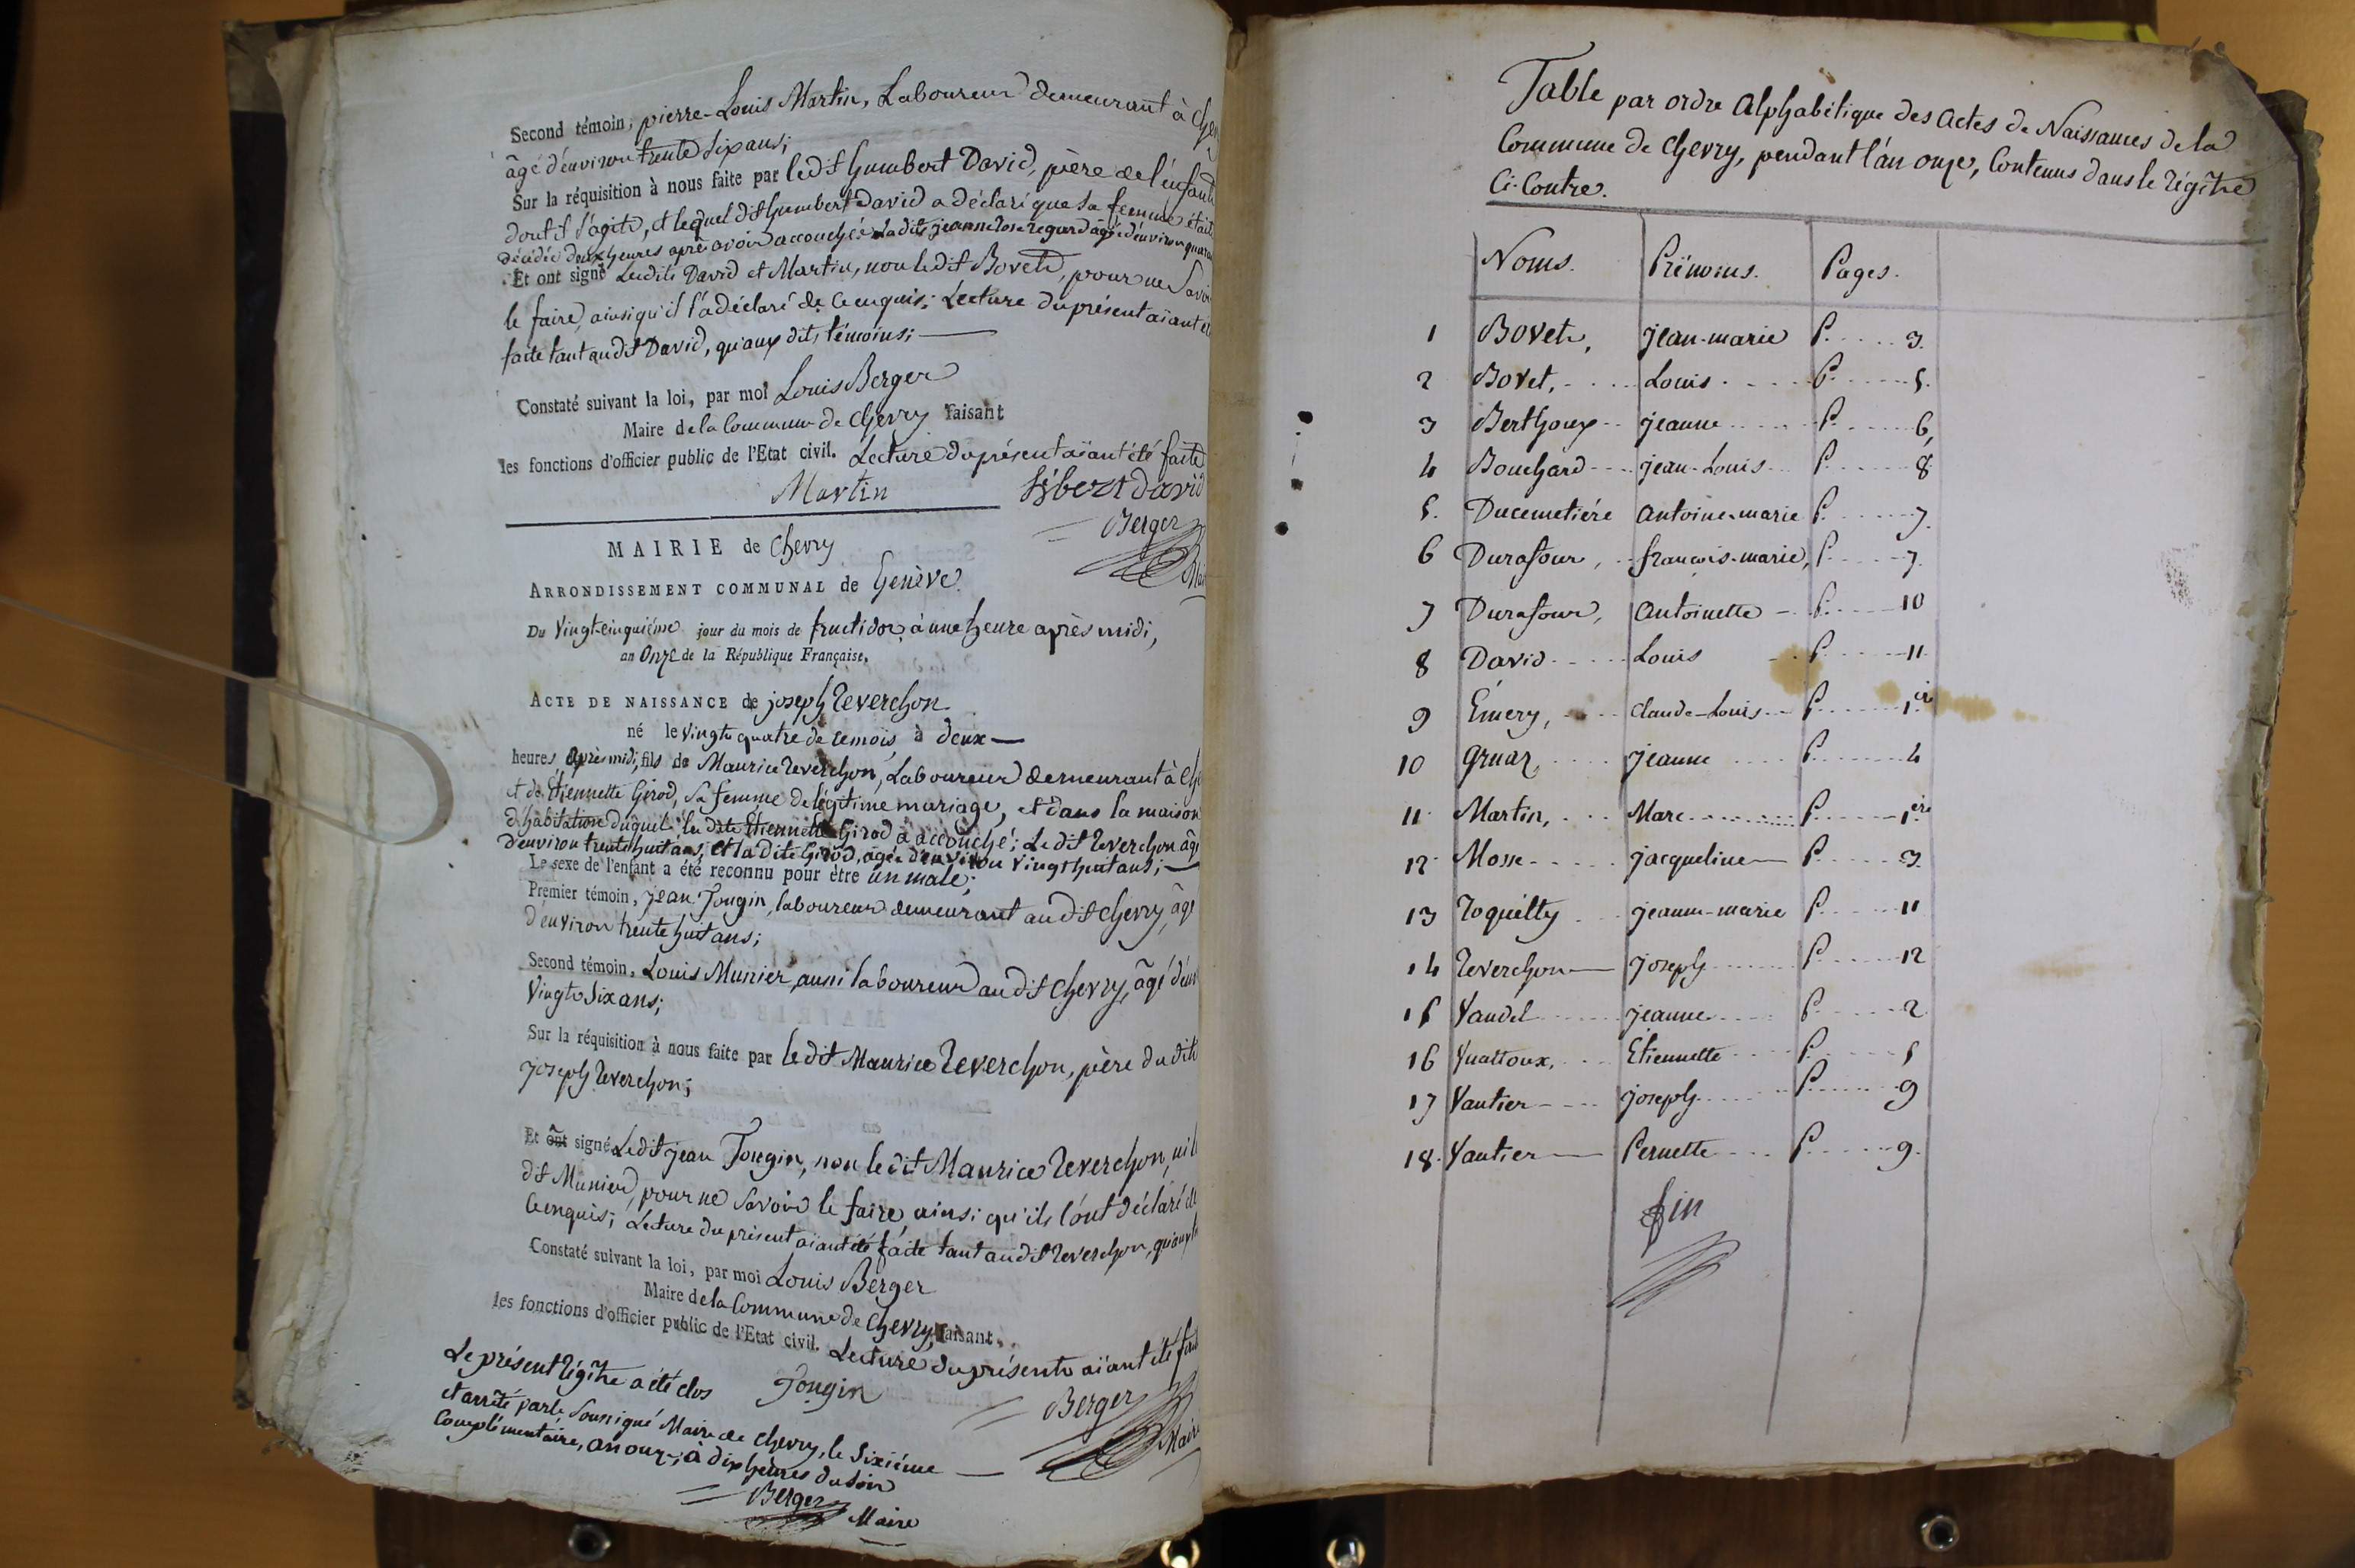 Second témoin, pierre-Louis Martin, Laboureur demeurant à Che
âgé d'environ trente six ans;
Sur la réquisition à nous faite par le dit humbert David, père de l'enfant
dont il s'agit, et lequel dit humbert David a déclaré que sa femme était
décédée deux heures après avoir accouché: la dite jeannetone regard âgée d'environ quara
Et ont signé Lesdits David et Martin, non ledit Bovet, pour ne Savoi
le faire, ainsi qu'il l'a déclaré de ce enquis; Lecture du présent aïant é
faite tant au dit David, qu'aux dits témoins;
Constaté suivant la loi, par moi Louis Berger
Maire de la Commune de Chevry faisant
les fonctions d'officier public de l'Etat civil. Lecture du présent aïant été faite
Martin
David
Berger
MAIRIE de Chevry
ARRONDISSEMENT COMMUNAL de Genève.
Du Vingt-cinquiéme jour du mois de fructidor, à une heure après midi,
an Onze de la République Française.
ACTE DE NAISSANCE de joseph Reverchon
né le vingt quatre de ce mois à deux
heures après midi, fils de Maurice Reverchon, Laboureur demeurant à Che
et de Étiennette Girod, sa femme de légitime mariage, et dans la maison
d'habitation duquel la dite Étiennette Girod a accouché; Le dit Reverchon âg
d'environ trente huit ans, et la dite Girod, âgée d'environ vingt huit ans;
Le sexe de l'enfant a été reconnu pour être un male;
Premier témoin, jean Jougin, laboureur demeurant au dit Chevry, âgé
d'environ trente huit ans;
Second témoin, Louis Munier, aussi laboureur au dit Chevry, âgé d'en
vingt Six ans;
Sur la réquisition à nous faite par le dit Maurice Reverchon, père du dit
joseph Reverchon;
Et ont signé Ledit jean Jougin, non le dit Maurice Reverchon, ni l
dit Munier, pour ne Savoir le faire, ainsi qu'ils l'ont déclaré de
ce enquis; Lecture du présent aïant été faite tant au dit Reverchon, qu'aux
Constaté suivant la loi, par moi Louis Berger
Maire de la Commune de Chevry, faisant
les fonctions d'officier public de l'Etat civil. Lecture du présent aïant été fai
Jougin
Berger
Maire
Le présent régitre a été clos
et arrêté par le Soussigné Maire de Chevry, le Sixiéme
Complémentaire, an onze, à dix heures du Soir
Berger
Maire
Table par ordre Alphabétique des Actes de Naissances de la
Commune de Chevry, pendant l'an onze, Contenus dans le régitre
Ci-Contre.
Noms. Prénoms. Pages.
1 Bovet, jean-marie P. 3.
2 Bovet, Louis P. 5.
3 Berthoux jeanne P. 6,
4 Bouchard jean-Louis P. 8
5. Ducimetiére Antoine-marie P. 7.
6 Durafour, françois-marie, P. 7.
7 Durafour, Antoinette P. 10
8 David Louis P. 11
9 Émery, Claude-Louis P. 1ere
10 Gruaz, jeanne P. 4
11 Martin, Marc P. 1ere
12 Mosse jacqueline P. 3.
13 Roquilly jeanne-marie P. 11
14 Reverchon joseph P. 12
15 Vandel jeanne P. 2
16 Vuattoux, Étiennette P. 5
17 Vautier joseph P. 9
18. Vautier Pernette P. 9.
fin